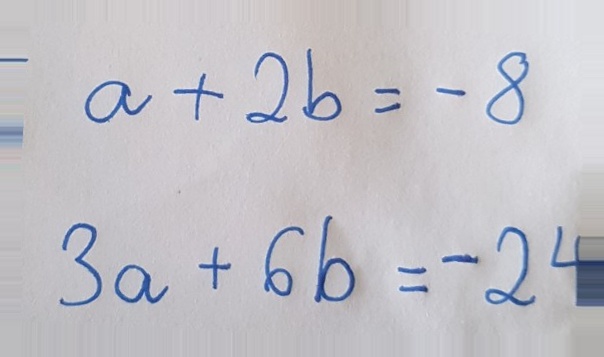 a + 2b = - 8
3a + 6b = - 24